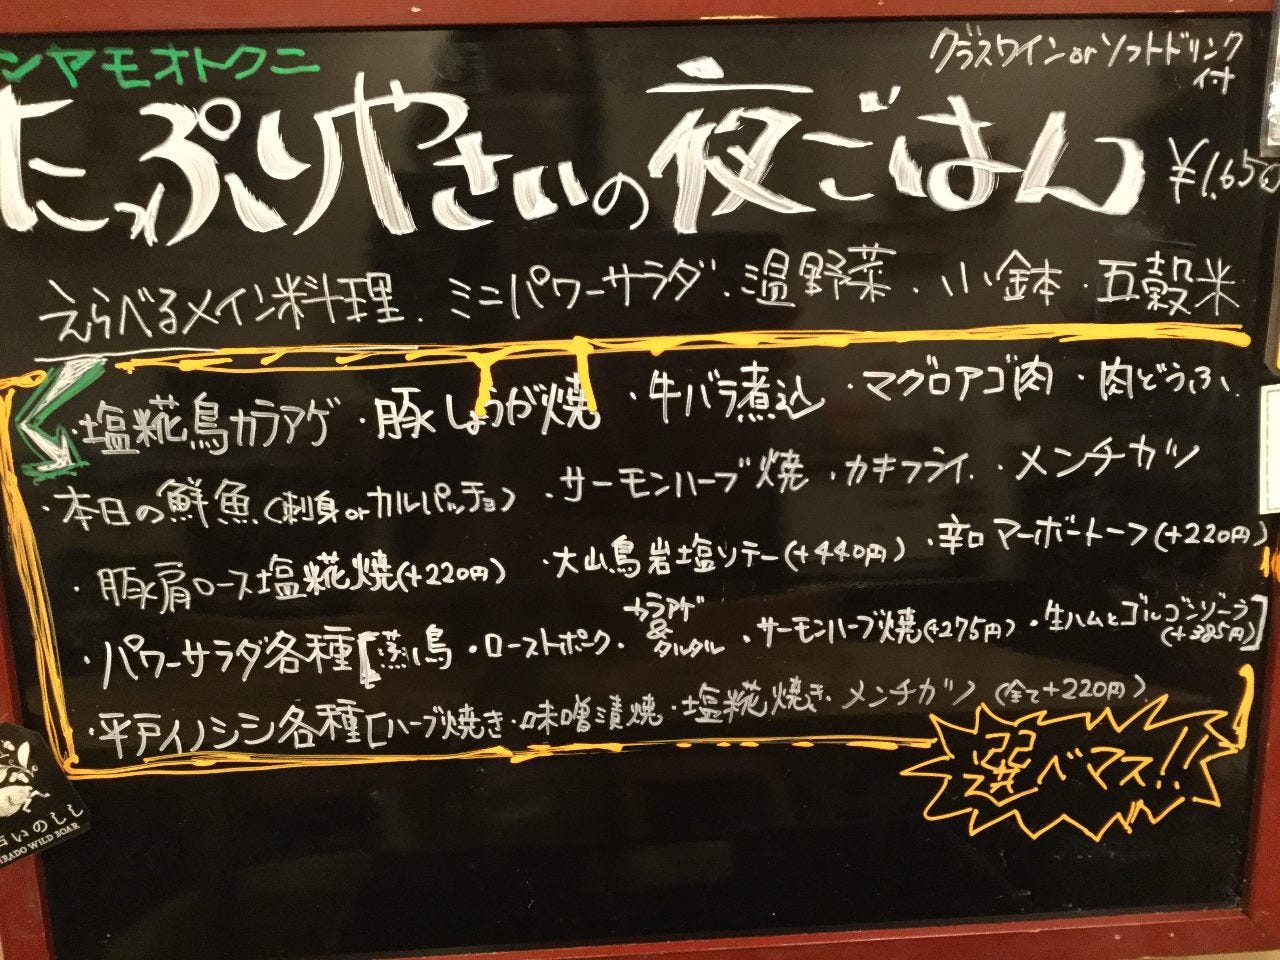 ンヤモオトクニ
グラスワインorソフトドリンク
付
たっぷりやさいの夜ごはん ¥1.650
えらべるメイン料理.ミニパワーサラダ.温野菜.小鉢.五穀米
・塩糀鳥カラアゲ ・豚しょうが焼 ・牛バラ煮込 ・マグロアゴ肉 ・肉どうふ
・本日の鮮魚(刺身orカルパッチョ) ・サーモンハーブ焼 ・カキフライ ・メンチカツ
・豚肩ロース塩糀焼(+220円) ・大山鳥岩塩ソテー(+440円) ・辛口マーボートーフ(+220円)
・パワーサラダ各種[蒸し鳥 ・ローストポーク ・カラアゲ&タルタル ・サーモンハーブ焼(+275円) ・生ハムとゴルゴンゾーラ(+385円)]
・平戸イノシシ各種[ハーブ焼き・味噌漬焼・塩糀焼き.メンチカツ (全て+220円)
選べマス!!
いのしし
RADO WILD BOAR